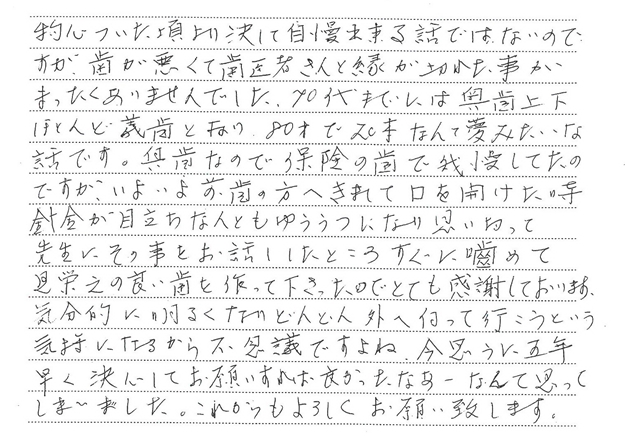 物心ついた頃より決して自慢出来る話ではないので
すが、歯が悪くて歯医者さんと縁が切れた事が
まったくありませんでした、70代までには奥歯上下
ほとんど義歯となり、80才で20本なんて夢みたいな
話です。奥歯なので保険の歯で我慢してたの
ですが、いよいよ前歯の方へきまして口を開けた時
針金が目立ちなんともゆううつになり思い切って
先生にその事をお話ししたところすぐに噛めて
見栄えの良い歯を作って下さったのでとても感謝しております、
気分的に明るくなりどんどん外へ行って行こうという
気持になるから不思議ですよね、今思うに五年
早く決心してお願いすれば良かったなあーなんて思って
しまいました。これからもよろしくお願い致します。